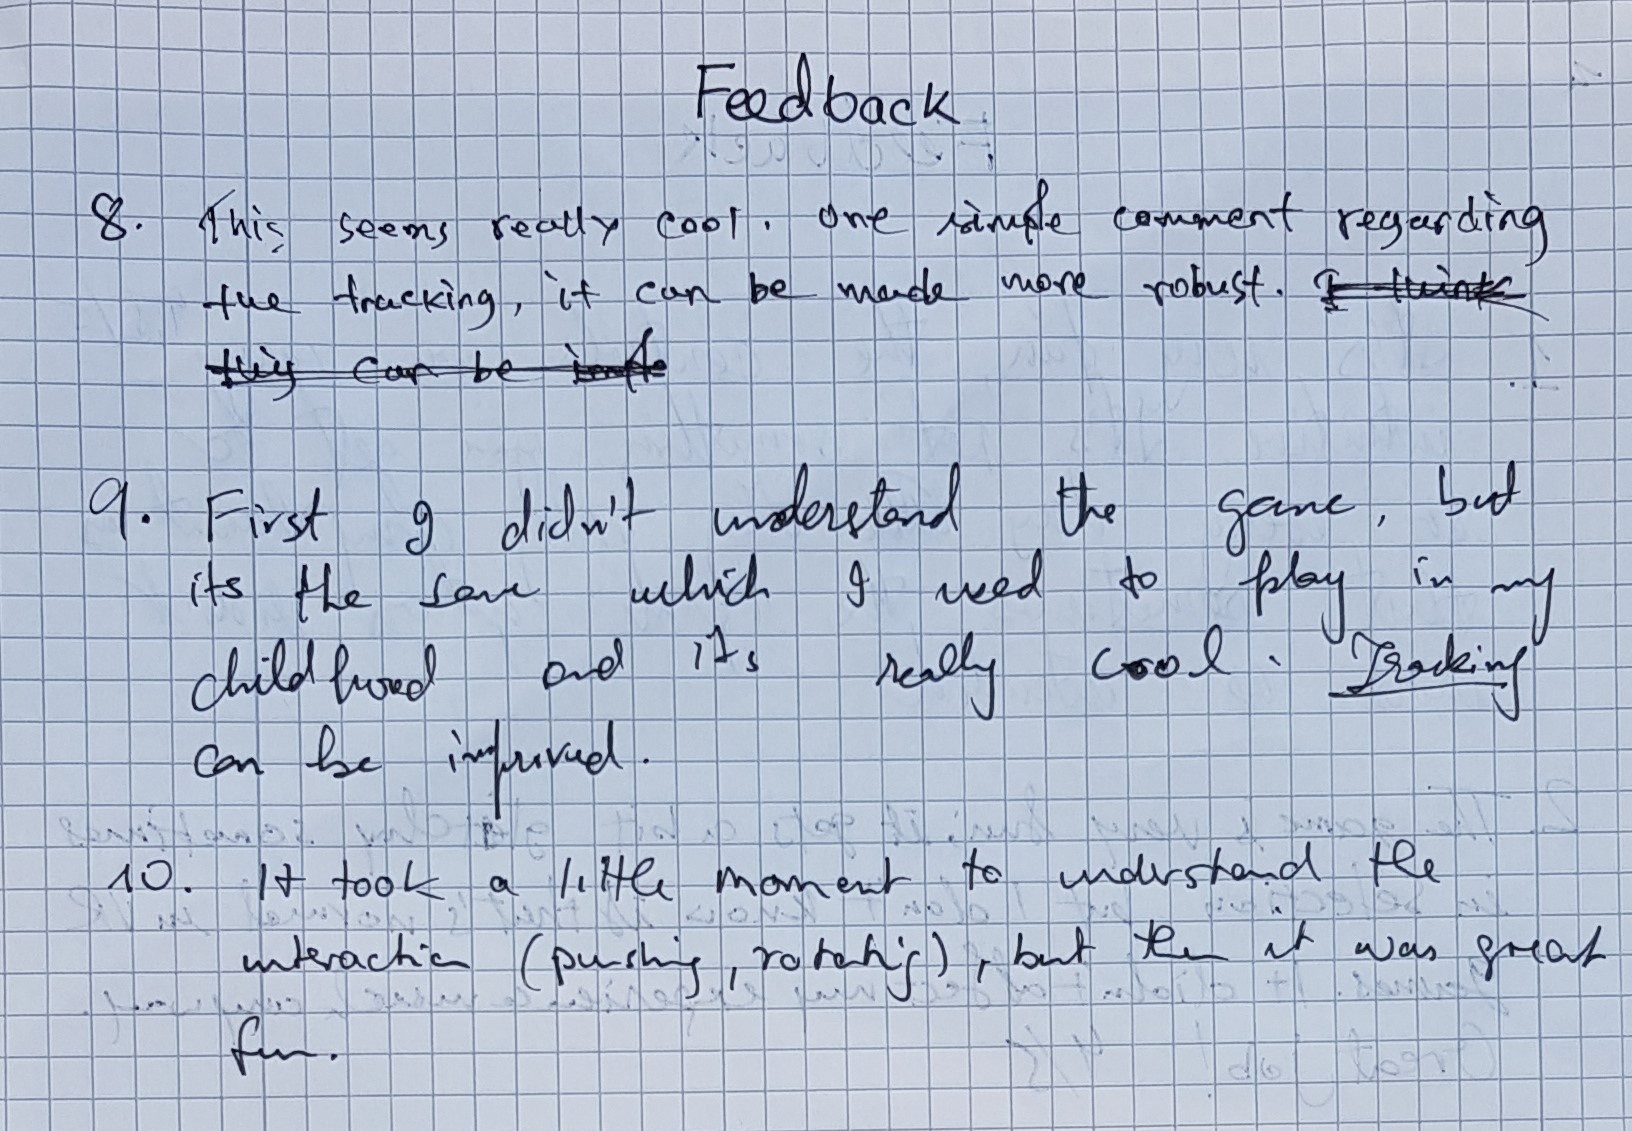 Feedback
8. This seems really cool. One simple comment regarding
the tracking, it can be made more robust. I think
this can be
9. First I didn't understand the game, but
its the same which I used to play in my
childhood and it's really cool. Tracking
can be improved.
10. It took a little moment to understand the
interaction (pushing, rotating), but then it was great
fun.